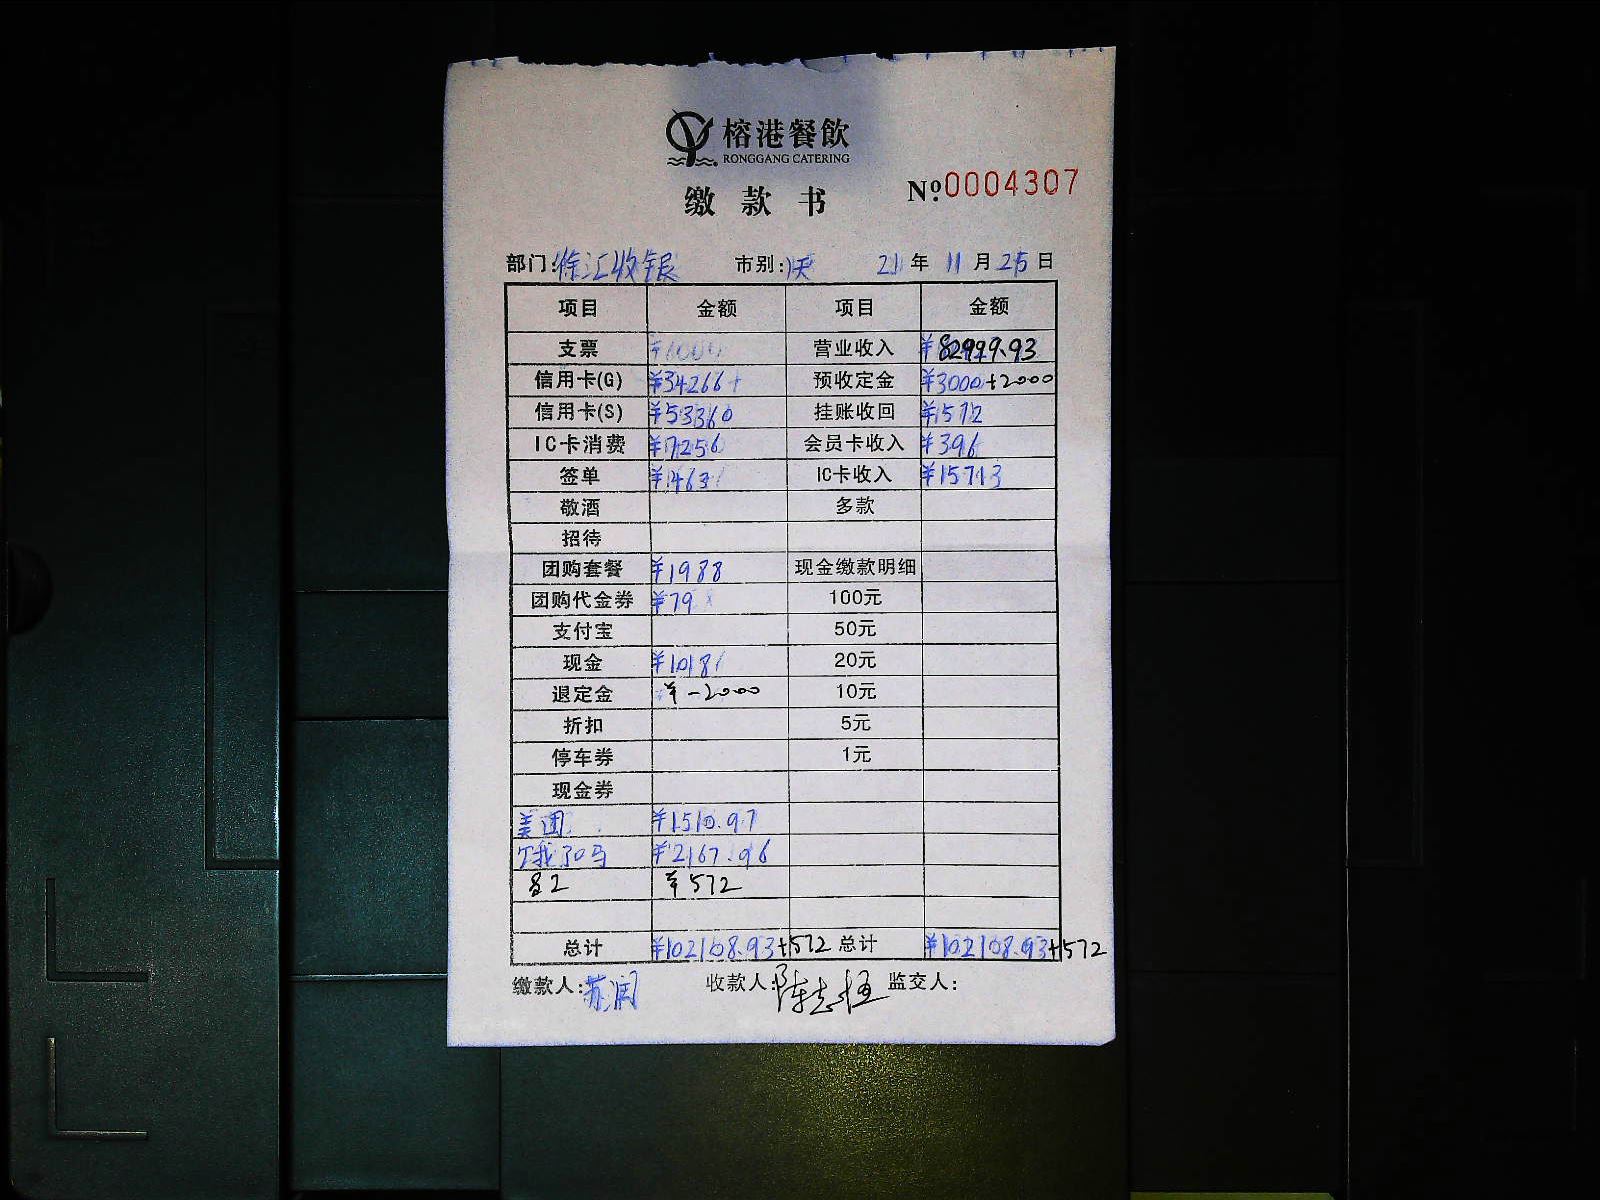 榕港餐飲
RONGGANG CATERING
缴款书
№0004307
部门:徐汇收银 市别: 21年11月25日
项目 金额 项目 金额
支票 ¥1000 营业收入 ¥82999.93
信用卡(G) ¥34266 预收定金 ¥3000+2000
信用卡(S) ¥53360 挂账收回 ¥572
IC卡消费 ¥7256 会员卡收入 ¥396
签单 ¥1463 IC卡收入 ¥15713
敬酒 多款
招待
团购套餐 ¥1988 现金缴款明细
团购代金券 ¥79 100元
支付宝 50元
现金 ¥1018 20元
退定金 ¥-2000 10元
折扣 5元
停车券 1元
现金券
美团 ¥1510.97
饿了吗 ¥2167.96
¥572
总计 ¥102108.93+572 总计 ¥102108.93+572
缴款人:苏润 收款人:陈志 监交人: